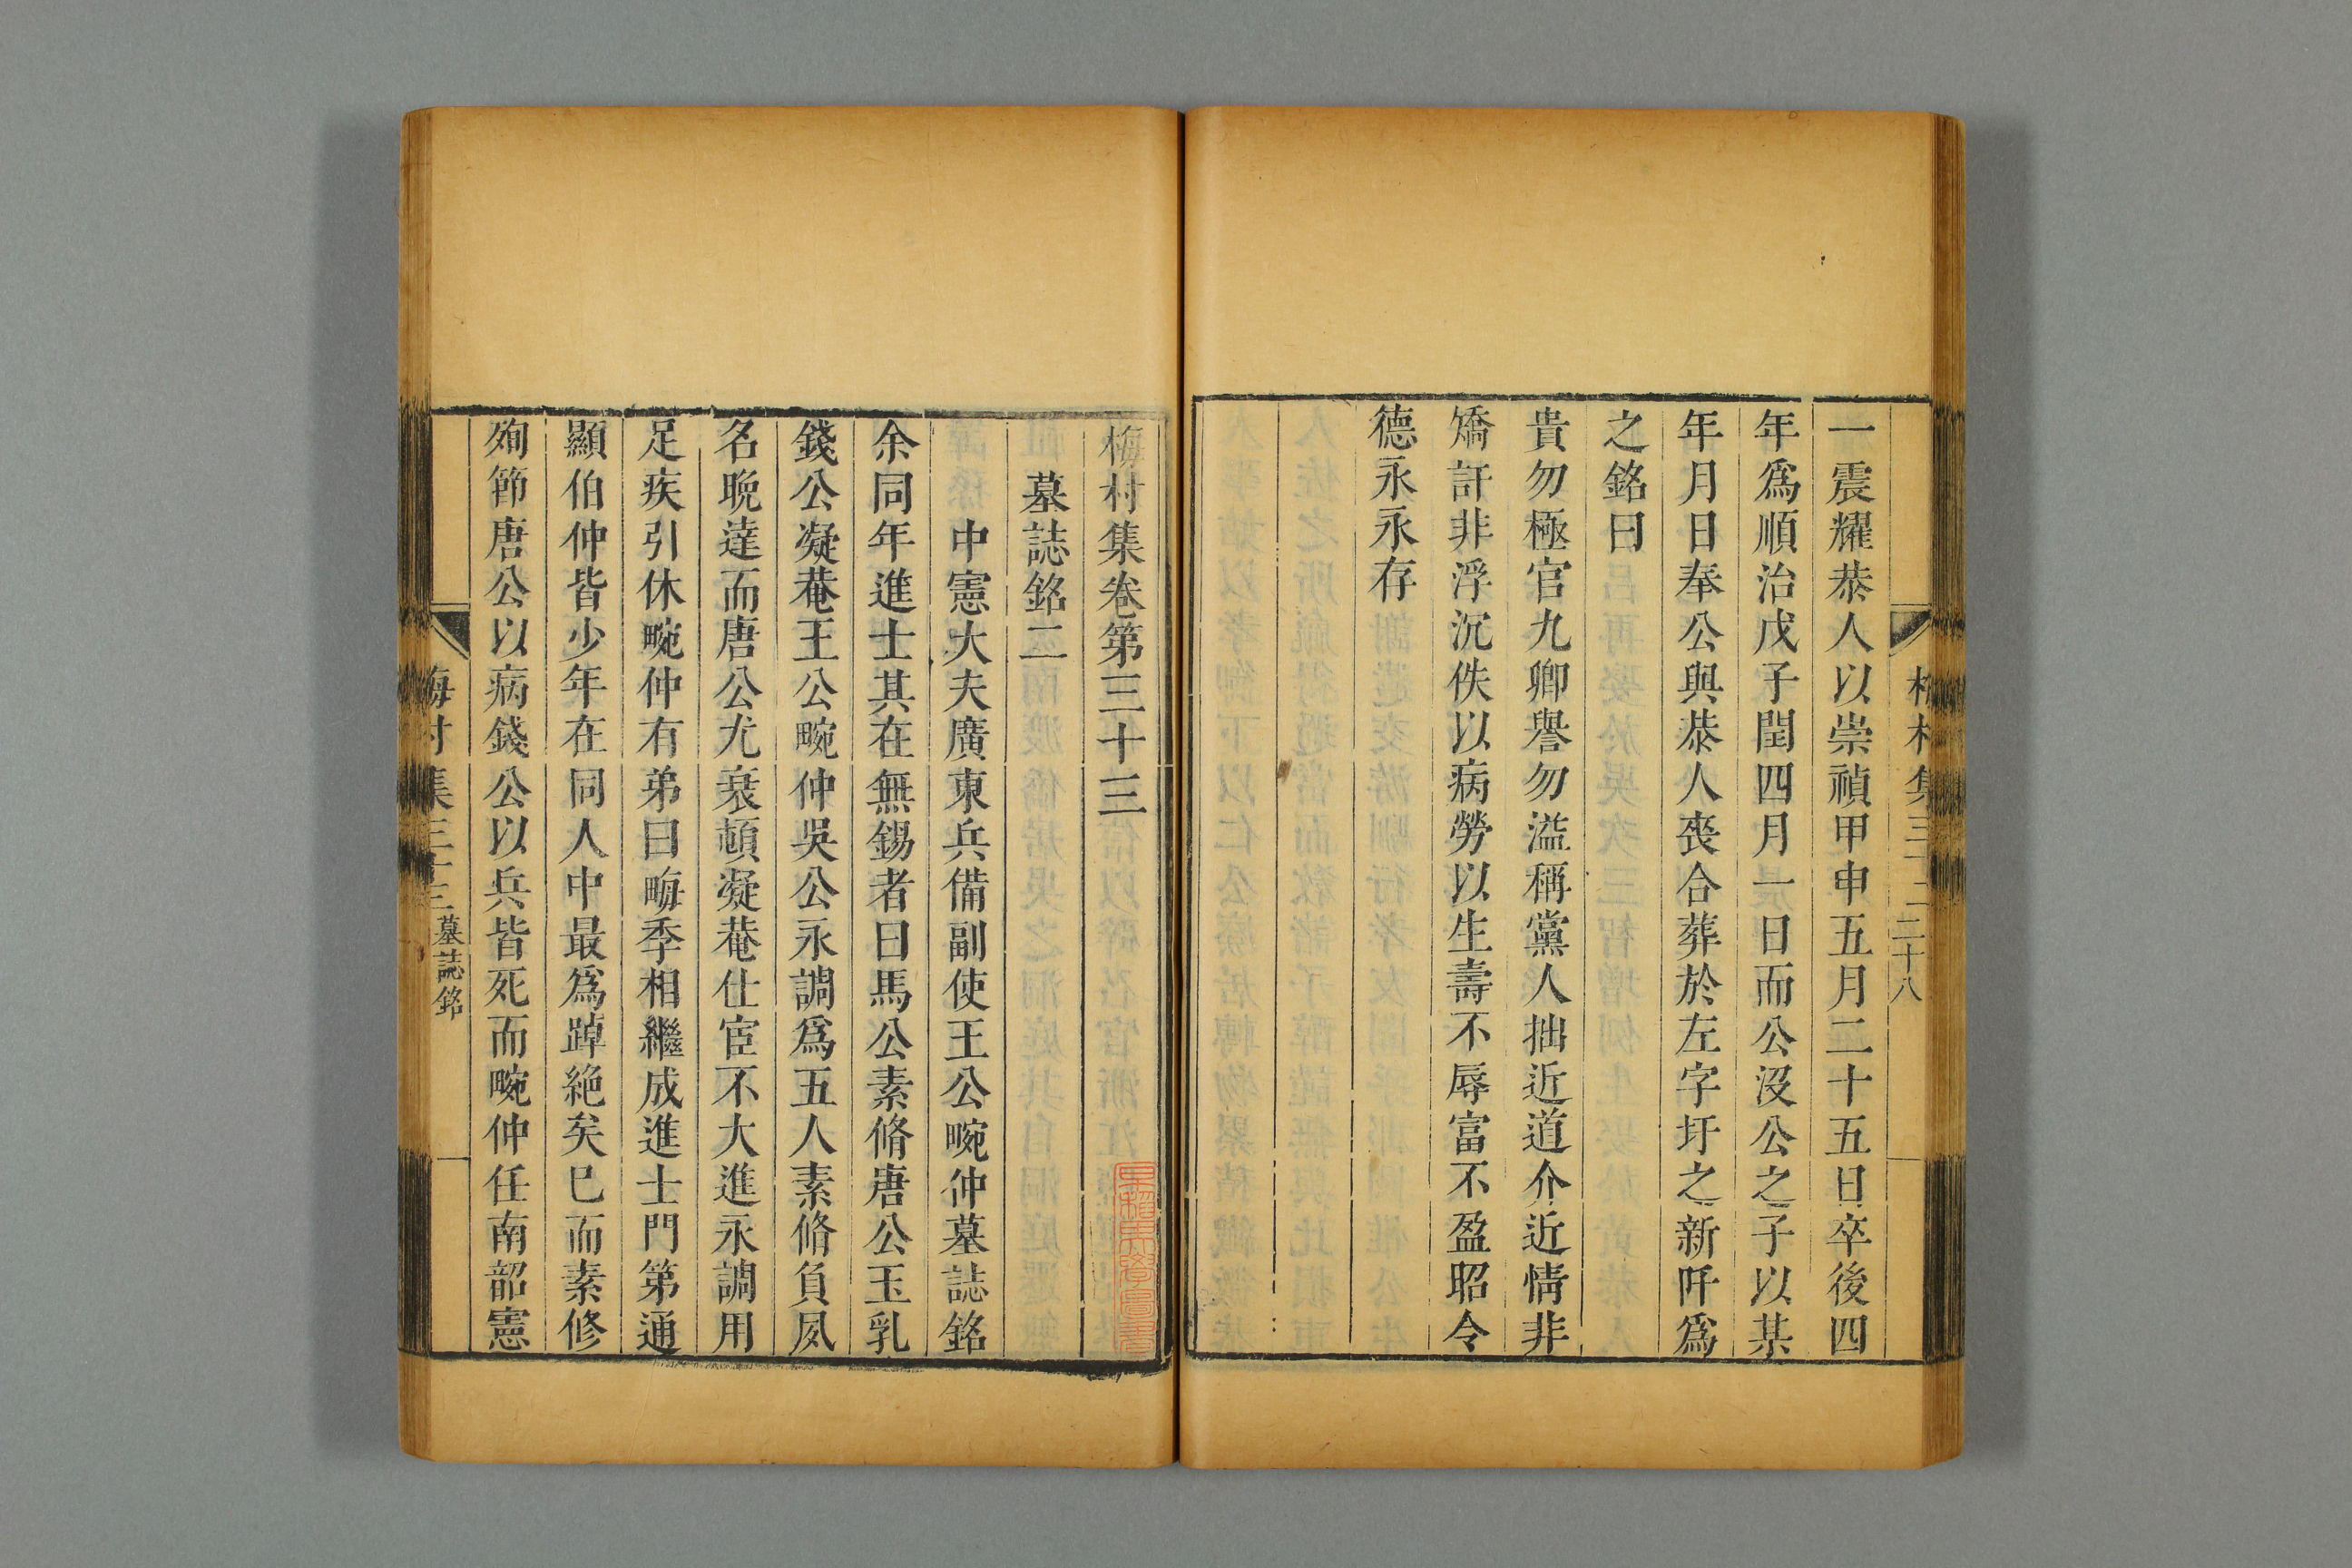 一震耀恭人以崇禎甲申五月二十五日卒後四
年爲順治戊子閏四月一日而公沒公之子以某
年月日奉公與恭人喪合葬於左字圩之新阡爲
之銘曰
貴勿極官九卿譽勿溢稱黨人拙近道介近情非
矯訐非浮沉佚以病勞以生壽不辱富不盈昭令
德永永存
二十八
梅村集卷第三十三
墓誌銘二
中憲大夫廣東兵備副使王公畹仲墓誌銘
余同年進士其在無錫者曰馬公素脩唐公玉乳
錢公凝菴王公畹仲吳公永調爲五人素脩負夙
名晚達而唐公尤衰頓凝菴仕宦不大進永調用
足疾引休畹仲有弟曰畮季相繼成進士門第通
顯伯仲皆少年在同人中最爲踔絶矣已而素修
殉節唐公以病錢公以兵皆死而畹仲任南韶憲
梅村集三十三 墓誌銘